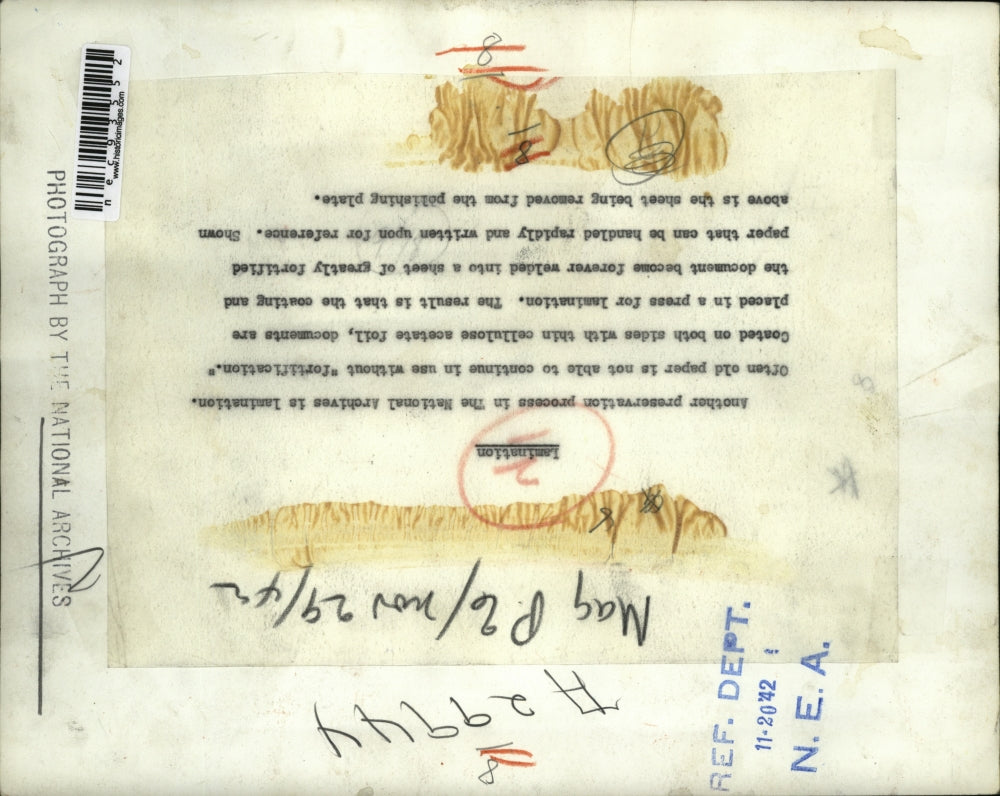 A2944
Mag P. 6/nov 29/42
2
Lamination
Another preservation process in The National Archives is lamination.
Often old paper is not able to continue in use without "fortification."
Coated on both sides with thin cellulose acetate foil, documents are
placed in a press for lamination. The result is that the coating and
the document become forever welded into a sheet of greatly fortified
paper that can be handled rapidly and written upon for reference. Shown
above is the sheet being removed from the polishing plate.
8
8
8
PHOTOGRAPH BY THE NATIONAL ARCHIVES
REF. DEPT.
11-20'42
N. E. A.
nec93552
www.historicimages.com